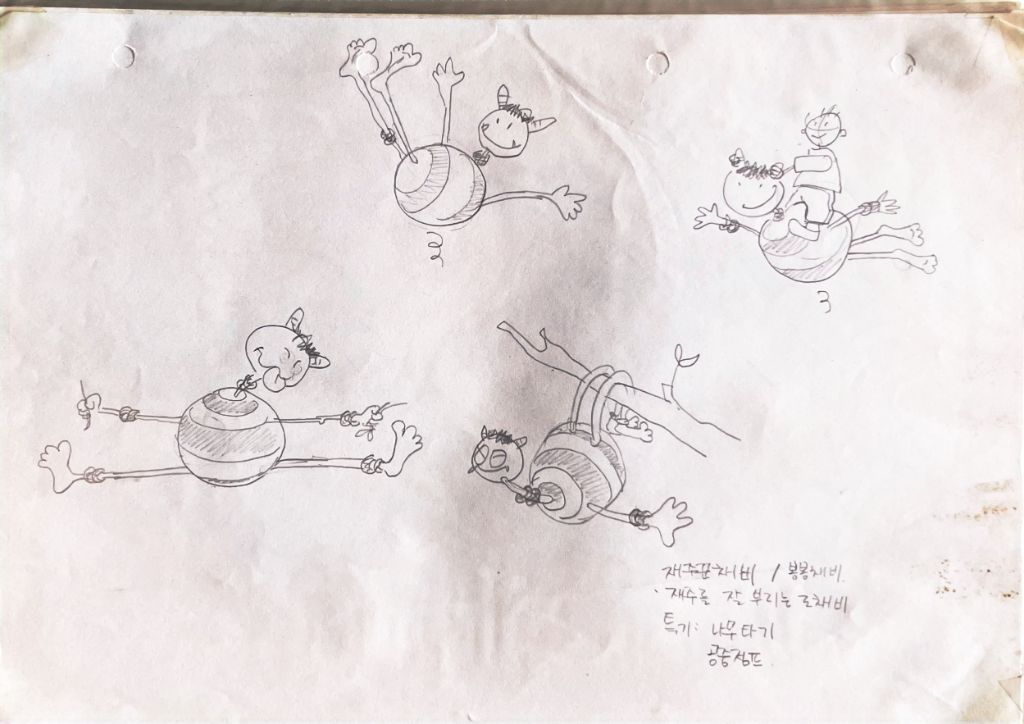 재주꾼채비 / 봉봉채비.
· 재주를 잘 부리는 도채비
특기: 나무타기
공중점프.